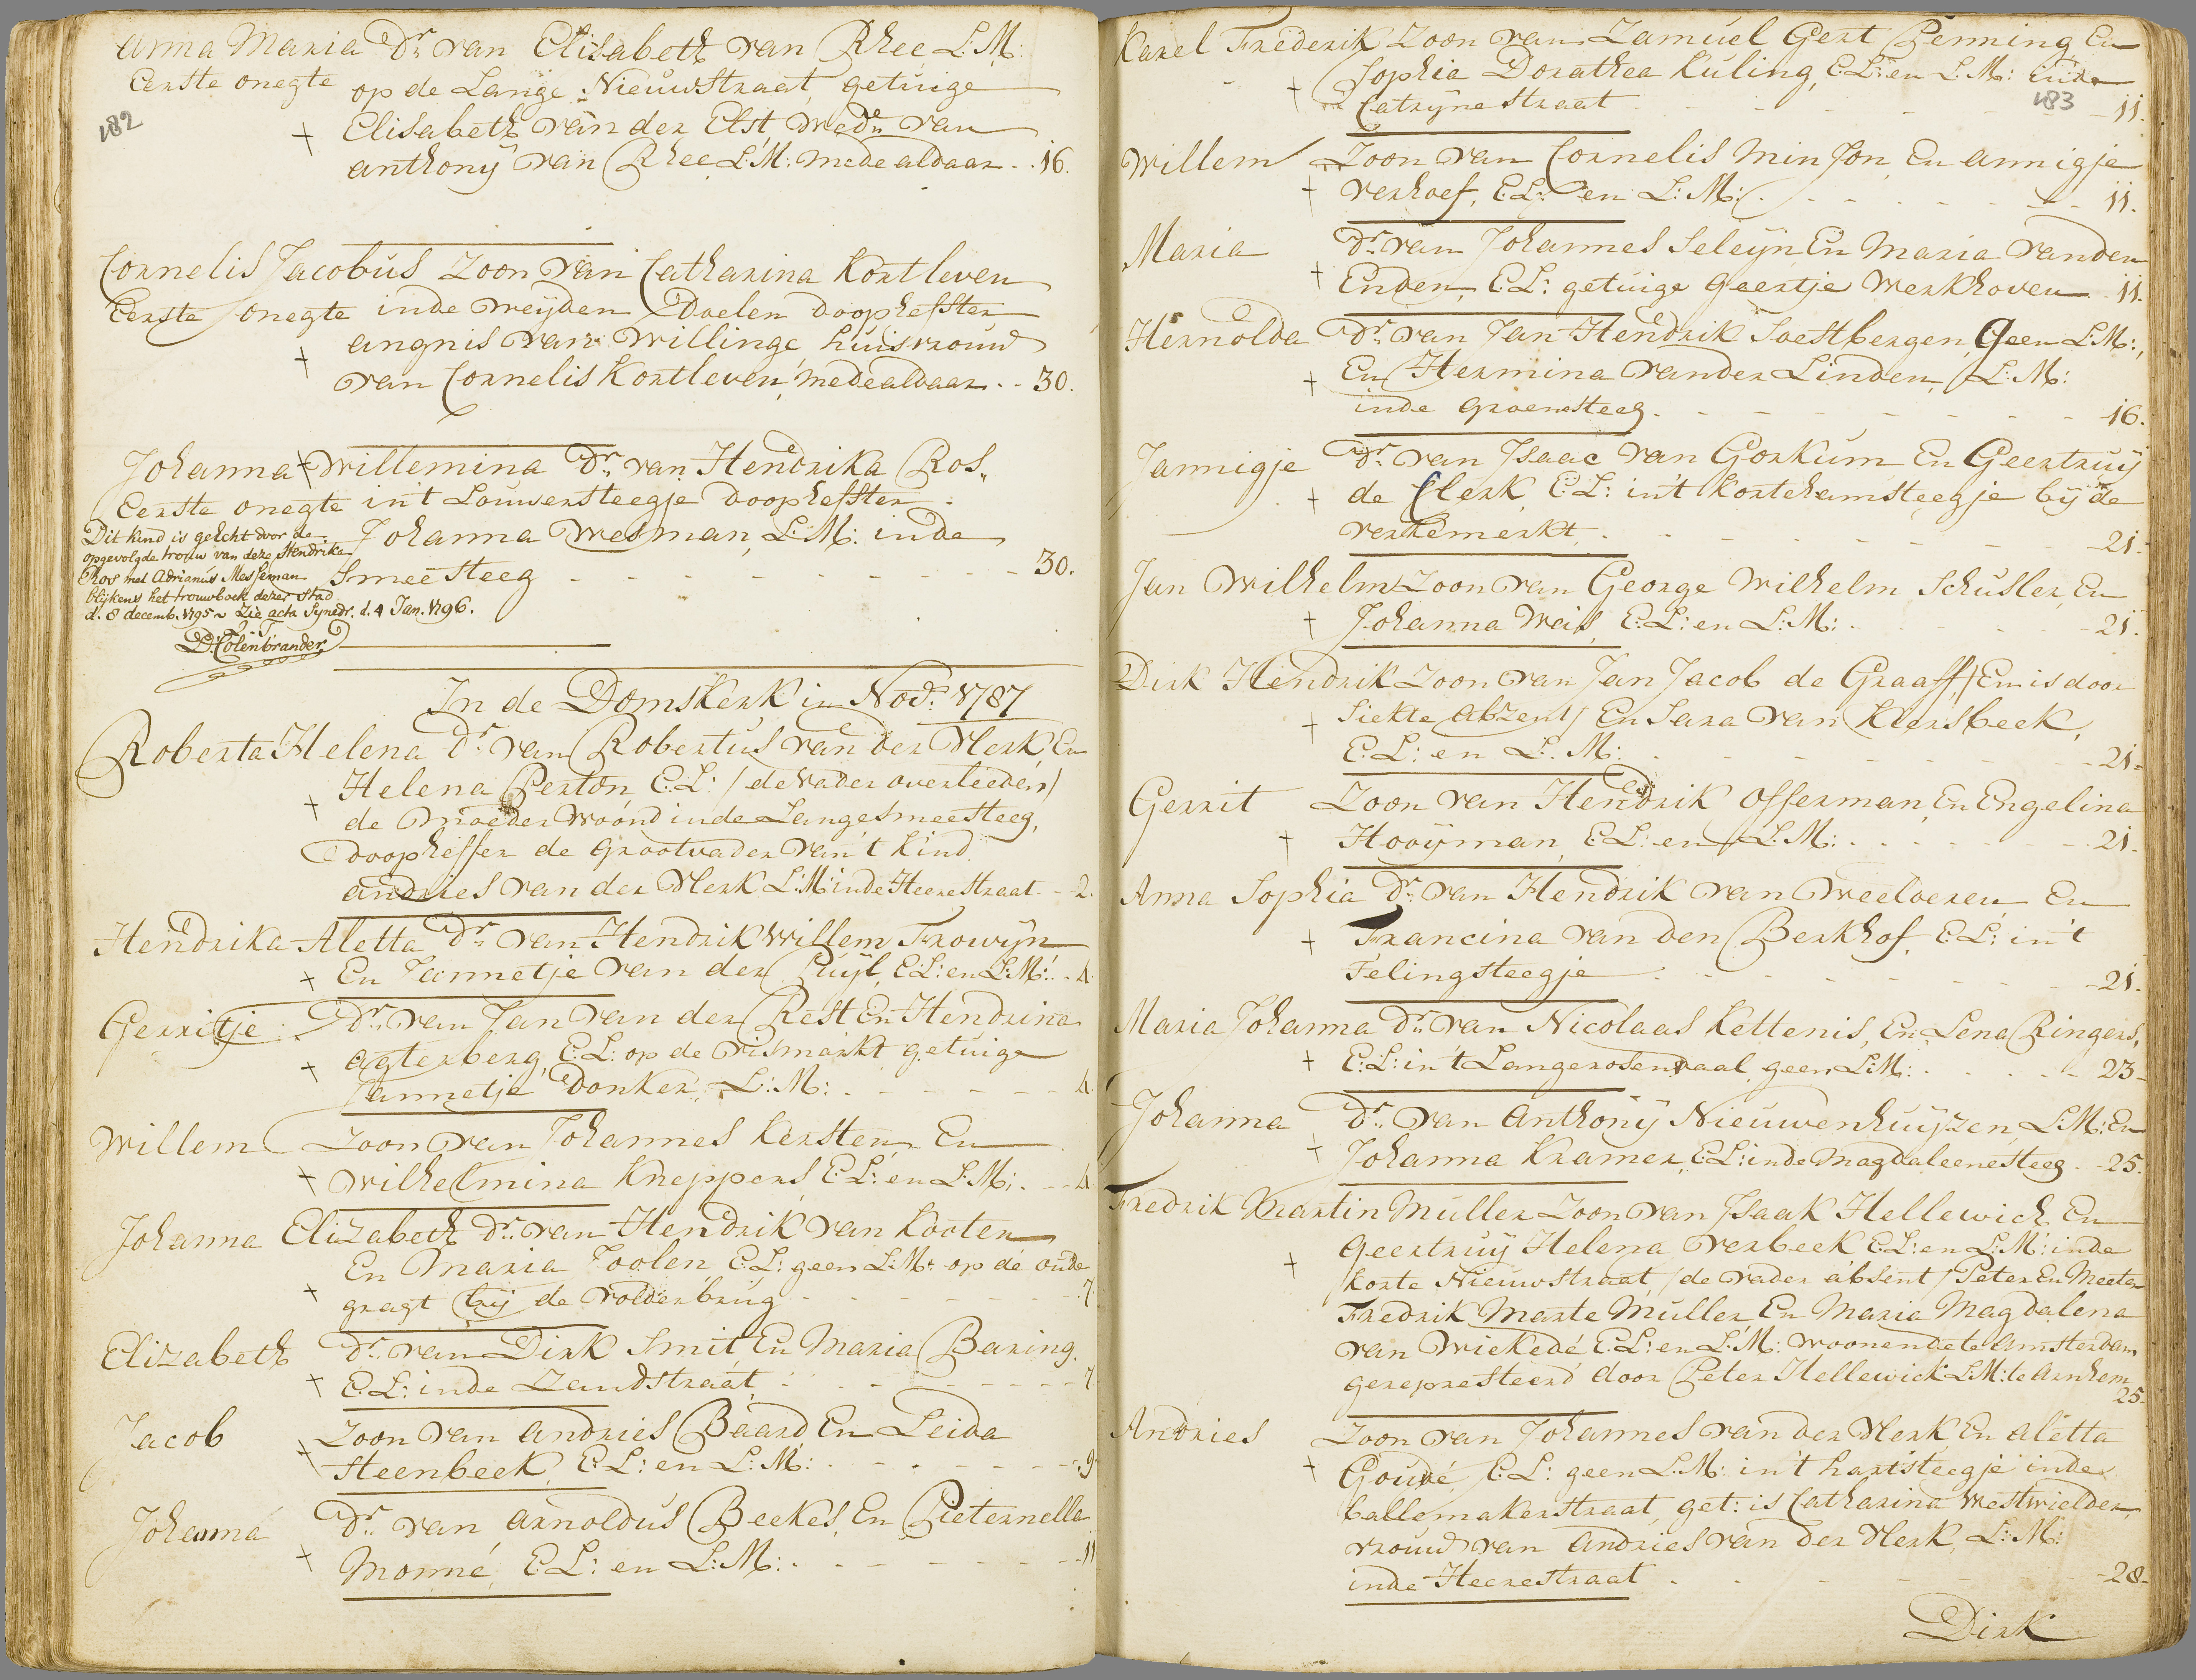 Anna Maria Dr. van Elisabeth van Rhee L:M:
Eerste onegte op de Lange Nieuwstraat, getuige
182
Elisabeth van der Elst, wede. van
anthonÿ van Rhee, L:M: mede aldaar - - 16.
Cornelis Jacobus Zoon van Catharina Kortleven
Eerste onegte inde weÿden Doelen doophefster
angnis van Willinge, huisvrouw
van Cornelis Kortleven, mede aldaar - - 30.
Johanna Willemina Dr. van Hendrika Ros.
Eerste onegte in't Louwersteegje Doophefster
Johanna Wesman, L:M: inde
Smeesteeg - - - - - - - - 30.
Dit kind is geëcht door de
opgevolgde trouw van deze Hendrika
Ros met Adrianus Messeman
blijkens het trouwboek dezer Stad
d. 8 decemb. 1795 Zie acta Synedr. d. 4 Jan. 1796.
D: Colenbrander
In de Domskerk in Nov: 1787
Roberta Helena Dr. van Robertus van der Merk, En
Helena Perton E:L: / de vader overleeden /
de moeder Woond inde Langesmeesteeg,
Doopheffer de Grootvader van't Kind
andries van der Merk L:M: inde Heerestraat - - 2.
Hendrika Aletta Dr. van Hendrik Willem Frowÿn
En Jannetje van der Puÿl, E:L: en L:M: - 4.
Gerritje Dr. van Jan van der Rest En Hendrina
agterberg, E:L: op de vismarkt, getuige
Jannetje Donker, L:M: - - - - - - 4.
Willem Zoon van Johannes Kersten, En
Wilhelmina Kneppers, E:L: en L:M: - - - 4
Johanna Elizabeth Dr. van Hendrik van Kooten
En Maria Toolen, E:L: geen L:M: op de oude
gragt bij de Volderbrug - - - - - - - 7.
Elizabeth Dr. van Dirk Smit En Maria Baring,
E:L: inde Zandstraat - - - - - - - 7
Jacob Zoon van Andries Baard En Leida
Steenbeek, E:L: en L:M: - - - - - - - 9
Johanna Dr. van Arnoldus Beekes, En Pieternella
Monné, E:L: en L:M: - - - - - - - 11
Karel Frederik Zoon van Zamuel Gert Penning En
Sophia Dorathea Kuling, E:L: en L:M: inde
183
Catrÿne straat - - - - - - - 11.
Willem Zoon van Cornelis Minson, En annigje
verhoef, E:L: en L:M: - - - - - - - 11.
Maria Dr. van Johannes Seleÿn En Maria vanden
Enden, E:L: getuige Geertje Werkhoven - 11.
Hernolda Dr. van Jan Hendrik Soestbergen, Geen L:M:,
En Hermina vander Linden, L:M:
inde Groenesteeg - - - - - - - 16.
Jannigje Dr. van Isaac van Gorkum En Geertruÿ
de Clerk, E:L: in't kortehamsteegje bÿ de
verkemerkt, - - - - - - - 21.
Jan Wilhelm Zoon van George Wilhelm Schusler, En
Johanna Weis, E:L: en L:M: - - - - - 21.
Dirk Hendrik Zoon van Jan Jacob de Graaff, / En is door
Siekte Abzent / En Sara van Kleesbeek,
E:L: en L:M: - - - - - - - 21.
Gerrit Zoon van Hendrik Offerman, En Engelina
Hooÿman, E:L: en L:M: - - - - - - - 21.
Anna Sophia Dr. van Hendrik van Weelderen, En
Francina van den Berkhof, E:L: in't
Felingsteegje - - - - - - - 21.
Maria Johanna Dr. van Nicolaas Kettenis, En Lena Ringers,
E:L: in't Langerosendaal, geen L:M: - - - - - 23
Johanna Dr. van Anthonÿ Nieuwenhuÿzen, L:M: En
Johanna Kramer, E:L: inde Magdaleenesteeg - - 25.
Fredrik Martin Muller Zoon van Isaak Hellewich En
Geertruÿ Helena verbeek E:L: en L:M: inde
korte Nieuwstraat, / de vader absent / Peter En Meeter
Fredrik Marte Muller En Maria Magdalena
van Wiekedé E:L: en L:M: Woonende te Amsterdam
gerepresteerd door Peter Hellewick L:M: te Arnhem
25.
Andries Zoon van Johannes van der Merk, En aletta
Goudé, E:L: geen L:M: in't hartsteegje inde
ballemakerstraat, get: is Catharina Westwielder,
vrouw van Andries van der Merk, L:M:
inde Heerestraat - - - - - - - 28
Dirk